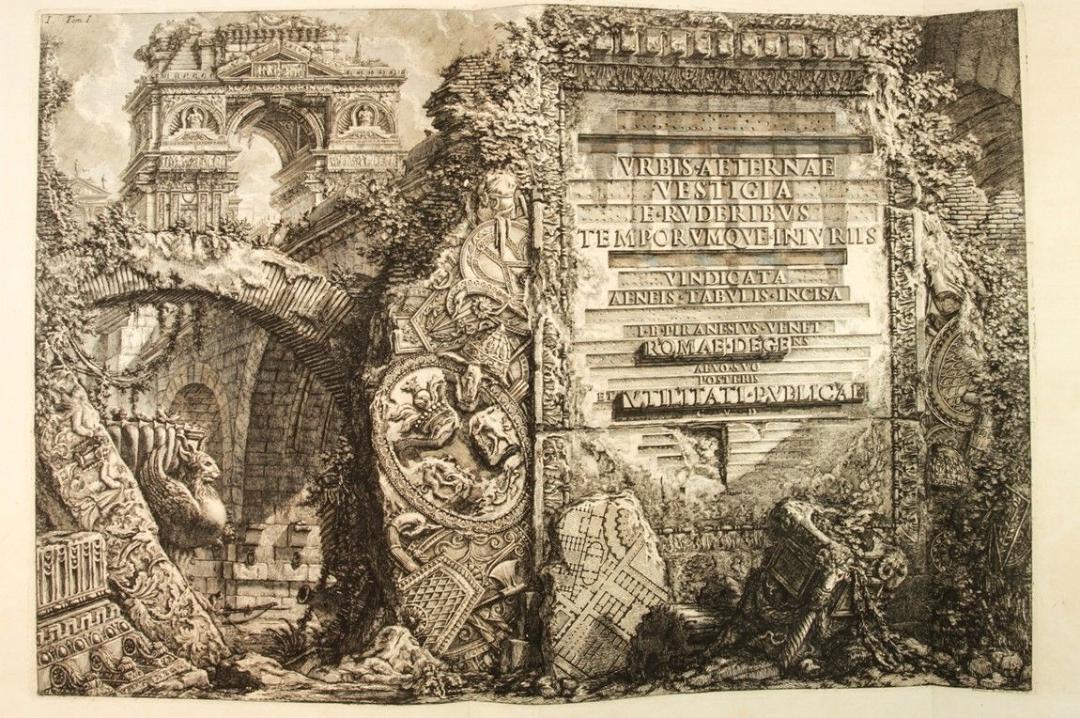 I. Tom I.
VRBIS·AETERNAE
VESTIGIA
E·RVDERIBVS
TEMPORVMQVE·INIVRIIS
VINDICATA
AENEIS·TABVLIS·INCISA
I·B·PIRANESIVS·VENET
ROMAE·DEGENS
AEVO·SVO
POSTERIS
ET UTILITATI·PVBLICAE
C·V·D